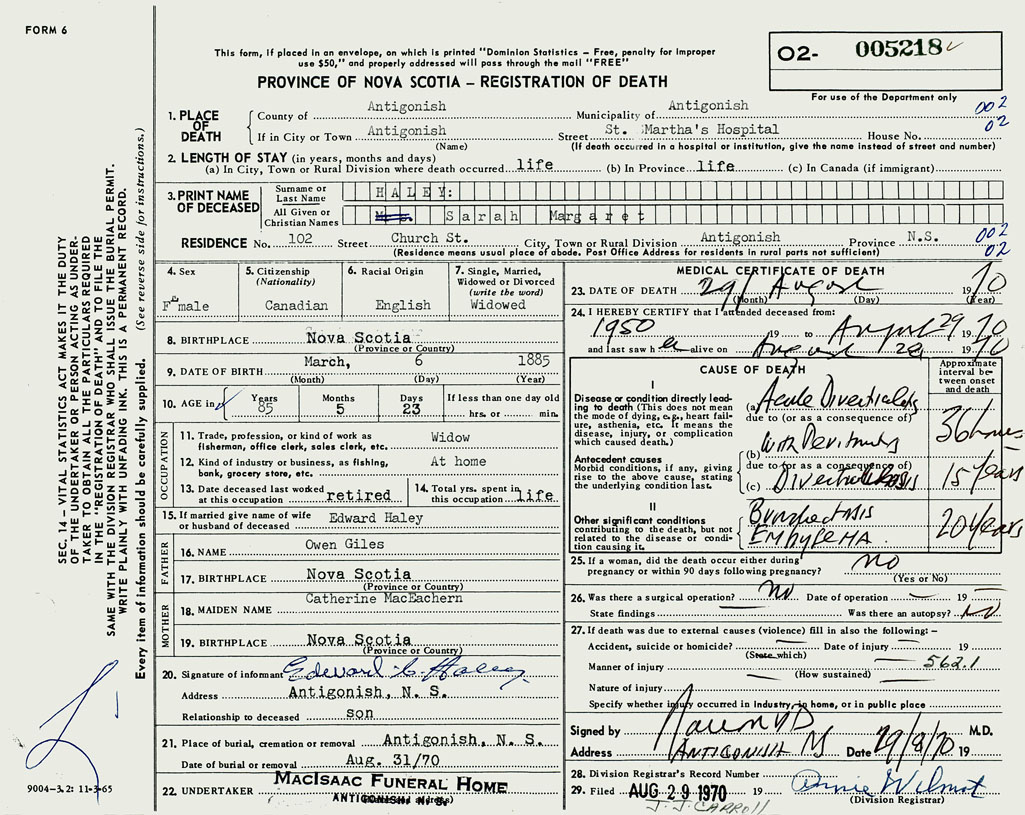 FORM 6
This form, if placed in an envelope, on which is printed "Dominion Statistics – Free, penalty for improper
use $50," and properly addressed will pass through the mail "FREE"
PROVINCE OF NOVA SCOTIA – REGISTRATION OF DEATH
02- 005218
For use of the Department only
1. PLACE OF DEATH
County of Antigonish Municipality of Antigonish 002
If in City or Town Antigonish Street St. Martha's Hospital House No. 02
(Name) (If death occurred in a hospital or institution, give the name instead of street and number)
2. LENGTH OF STAY (in years, months and days)
(a) In City, Town or Rural Division where death occurred life (b) In Province life (c) In Canada (if immigrant)
3. PRINT NAME OF DECEASED
Surname or Last Name HALEY:
All Given or Christian Names Mrs. Sarah Margaret
RESIDENCE No. 102 Street Church St. City, Town or Rural Division Antigonish Province N.S. 002
(Residence means usual place of abode. Post Office Address for residents in rural parts not sufficient) 02
4. Sex
Female
5. Citizenship
(Nationality)
Canadian
6. Racial Origin
English
7. Single, Married,
Widowed or Divorced
(write the word)
Widowed
8. BIRTHPLACE Nova Scotia
(Province or Country)
9. DATE OF BIRTH March, 6 1885
(Month) (Day) (Year)
10. AGE in Years 85 Months 5 Days 23 If less than one day old
hrs. or min.
OCCUPATION
11. Trade, profession, or kind of work as
fisherman, office clerk, sales clerk, etc. Widow
12. Kind of industry or business, as fishing,
bank, grocery store, etc. At home
13. Date deceased last worked
at this occupation retired
14. Total yrs. spent in
this occupation life
15. If married give name of wife
or husband of deceased Edward Haley
FATHER
16. NAME Owen Giles
17. BIRTHPLACE Nova Scotia
(Province or Country)
MOTHER
18. MAIDEN NAME Catherine MacEachern
19. BIRTHPLACE Nova Scotia
(Province or Country)
20. Signature of informant Edward C. Haley
Address Antigonish, N. S.
Relationship to deceased son
21. Place of burial, cremation or removal Antigonish, N. S.
Date of burial or removal Aug. 31/70
22. UNDERTAKER MacIsaac Funeral Home
ANTIGONISH, N. S.
MEDICAL CERTIFICATE OF DEATH
23. DATE OF DEATH 29/ August 1970
(Month) (Day) (Year)
24. I HEREBY CERTIFY that I attended deceased from:
1950 19 to August 29 1970
and last saw her alive on August 29 1970
CAUSE OF DEATH
Approximate interval between onset and death
I
Disease or condition directly leading to death (This does not mean the mode of dying, e.g., heart failure, asthenia, etc. It means the disease, injury, or complication which caused death.)
(a) Acute Diverticulitis
due to (or as a consequence of)
36 hours
Antecedent causes
Morbid conditions, if any, giving rise to the above cause, stating the underlying condition last.
(b) with Peritonitis
due to (or as a consequence of)
(c) Diverticulosis
15 years
II
Other significant conditions
contributing to the death, but not related to the disease or condition causing it.
Bronchiectasis
EMPYEMA
20 years
25. If a woman, did the death occur either during
pregnancy or within 90 days following pregnancy? no
(Yes or No)
26. Was there a surgical operation? no Date of operation 19
State findings Was there an autopsy? no
27. If death was due to external causes (violence) fill in also the following: –
Accident, suicide or homicide? Date of injury 19
(State which)
Manner of injury 562.1
(How sustained)
Nature of injury
Specify whether injury occurred in industry, in home, or in public place
Signed by M.D.
Address ANTIGONISH NS Date 29/8/70 19
28. Division Registrar's Record Number
29. Filed AUG 29 1970 19 Annie Wilmot
(Division Registrar)
J. J. CARROLL
SEC. 14 – VITAL STATISTICS ACT MAKES IT THE DUTY
OF THE UNDERTAKER OR PERSON ACTING AS UNDER-
TAKER TO OBTAIN ALL THE PARTICULARS REQUIRED
IN THE "REGISTRATION OF DEATH" AND TO FILE THE
SAME WITH THE DIVISION REGISTRAR WHO SHALL ISSUE THE BURIAL PERMIT.
WRITE PLAINLY WITH UNFADING INK. THIS IS A PERMANENT RECORD.
Every item of information should be carefully supplied. (See reverse side for instructions.)
9004-3.2: 11-3-65